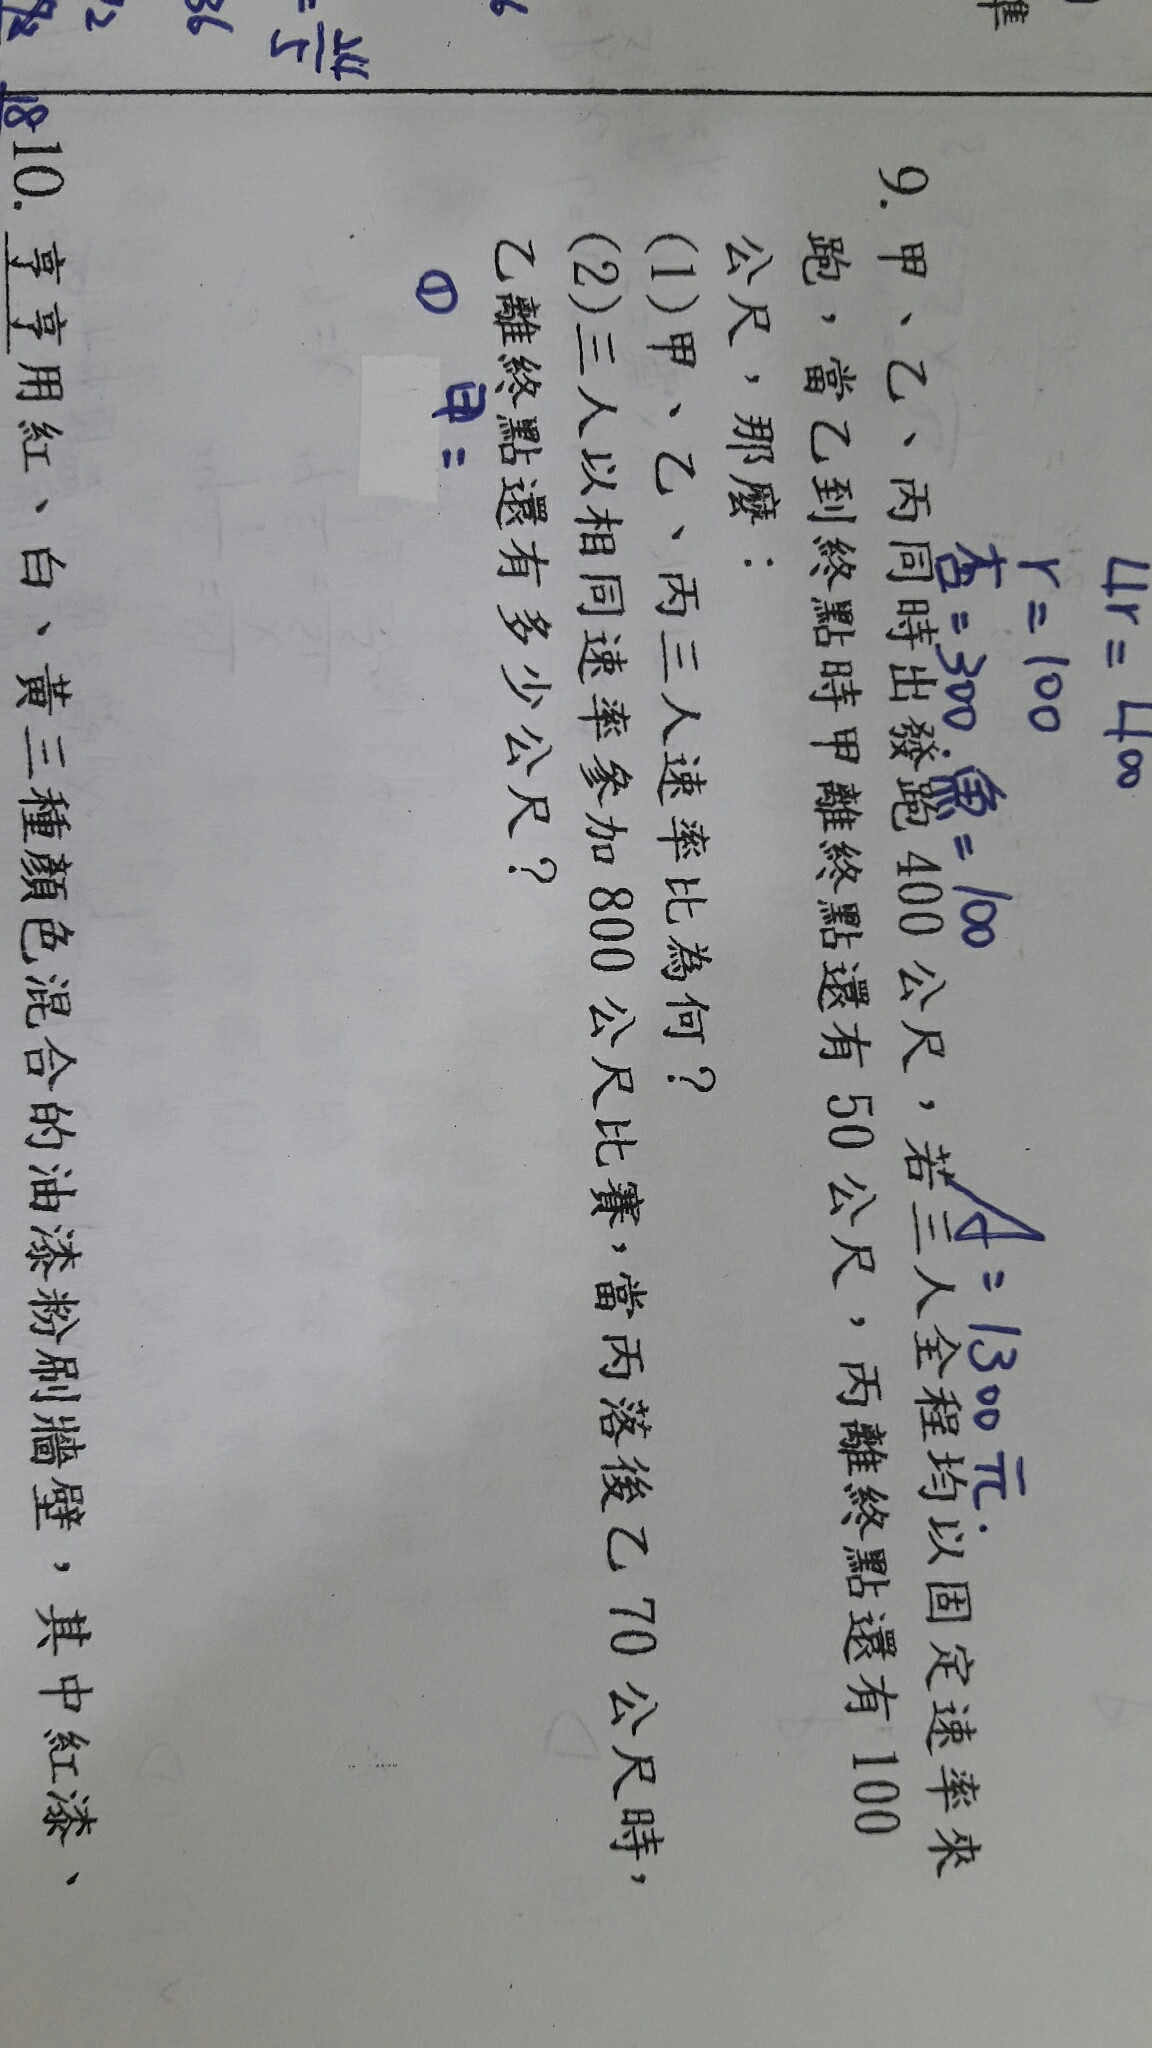 準
6
36
4r = 400
r = 100
杏 = 300. 魚 = 100
A = 1300元.
9. 甲、乙、丙同時出發跑 400 公尺，若三人全程均以固定速率來
跑，當乙到終點時甲離終點還有 50 公尺，丙離終點還有 100
公尺，那麼：
(1)甲、乙、丙三人速率比為何？
(2)三人以相同速率參加 800 公尺比賽，當丙落後乙 70 公尺時，
乙離終點還有多少公尺？
① 甲 =
18
10. 享享用紅、白、黃三種顏色混合的油漆粉刷牆壁，其中紅漆、